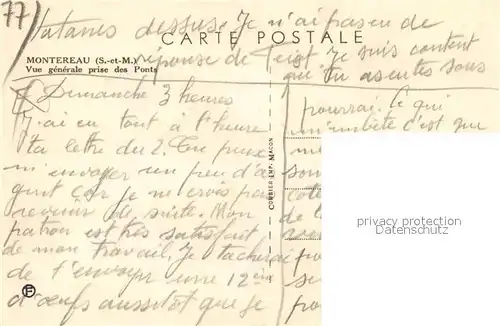 77
dessus. Je n'ai pas eu de
CARTE POSTALE
MONTEREAU (S.-et-M.)
Vue générale prise des Ponts
réponse de Je suis content
que tu as sous
Dimanche 3 heures
J'ai eu tout à l'heure
ta lettre du 2. Tu peux
m'envoyer un peu d'a
gent car je ne crois pas
revenir de suite. Mon
patron est très satisfait
de mon travail. Je tacherai
de t'envoyer une 12aine
d'œufs aussitôt que je
COMBIER IMP. MACON
pourrai. Ce qui
m'embête c'est que
me
son
de l
privacy protection